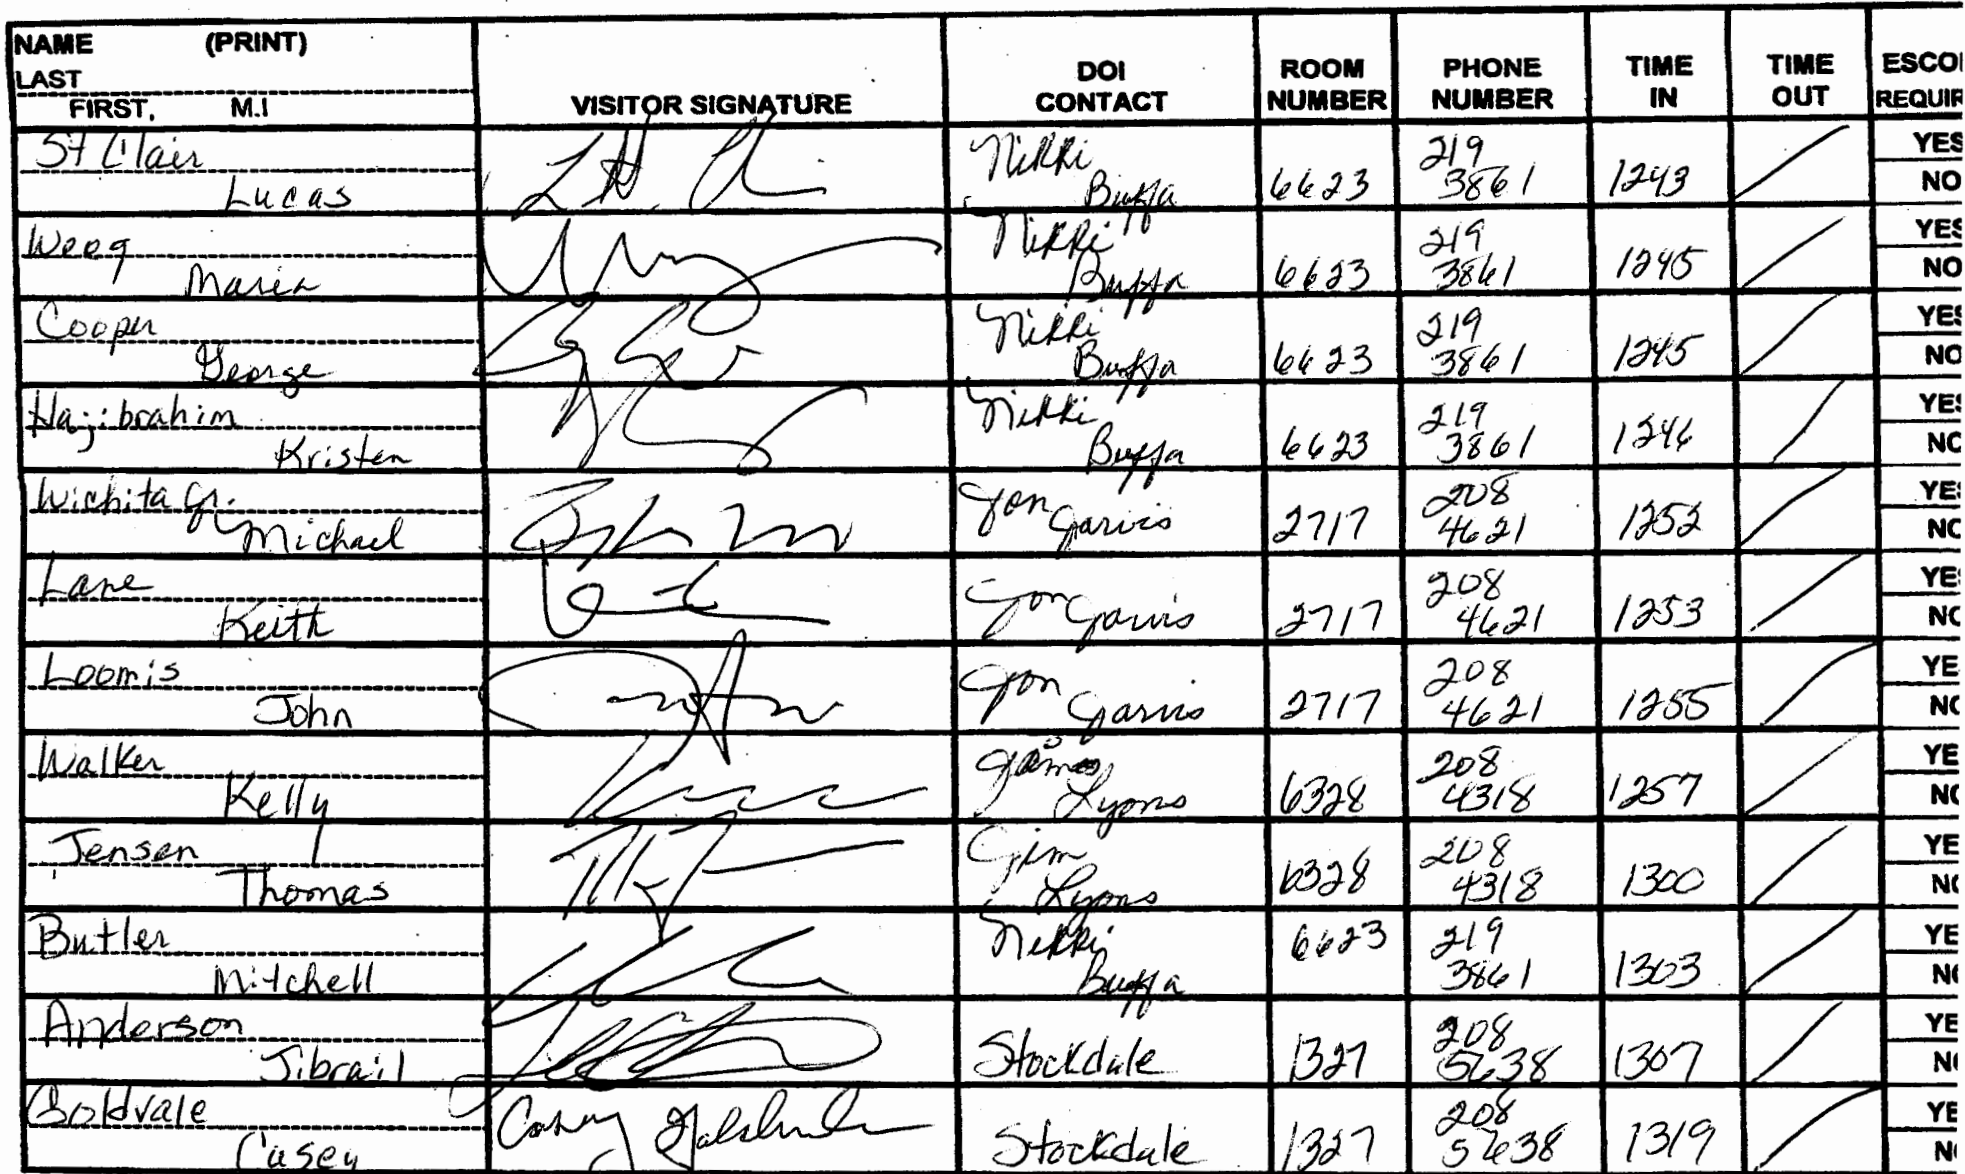 NAME (PRINT)
LAST
FIRST, M.I
VISITOR SIGNATURE
DOI
CONTACT
ROOM
NUMBER
PHONE
NUMBER
TIME
IN
TIME
OUT
ESCO
REQUIR
St Clair
Lucas
Nikki
Buffa
6623
219
3861
1243
YES
NO
Weeg
Maria
Nikki
Buffa
6623
219
3861
1245
YES
NO
Cooper
George
Nikki
Buffa
6623
219
3861
1245
YES
NO
Hajibrahim
Kristen
Nikki
Buffa
6623
219
3861
1246
YES
NO
Wichita Jr.
Michael
Jon
Jarvis
2717
208
4621
1252
YES
NO
Lane
Keith
Jon
Jarvis
2717
208
4621
1253
YES
NO
Loomis
John
Jon
Jarvis
2717
208
4621
1255
YE
NO
Walker
Kelly
James
Lyons
6328
208
4318
1257
YE
NO
Jensen
Thomas
Jim
Lyons
6328
208
4318
1300
YE
NO
Butler
Mitchell
Nikki
Buffa
6623
219
3861
1303
YE
NO
Anderson
Jibrail
Stockdale
1327
208
5638
1307
YE
NO
Goldvale
Casey
Casey
Stockdale
1327
208
5638
1319
YE
NO